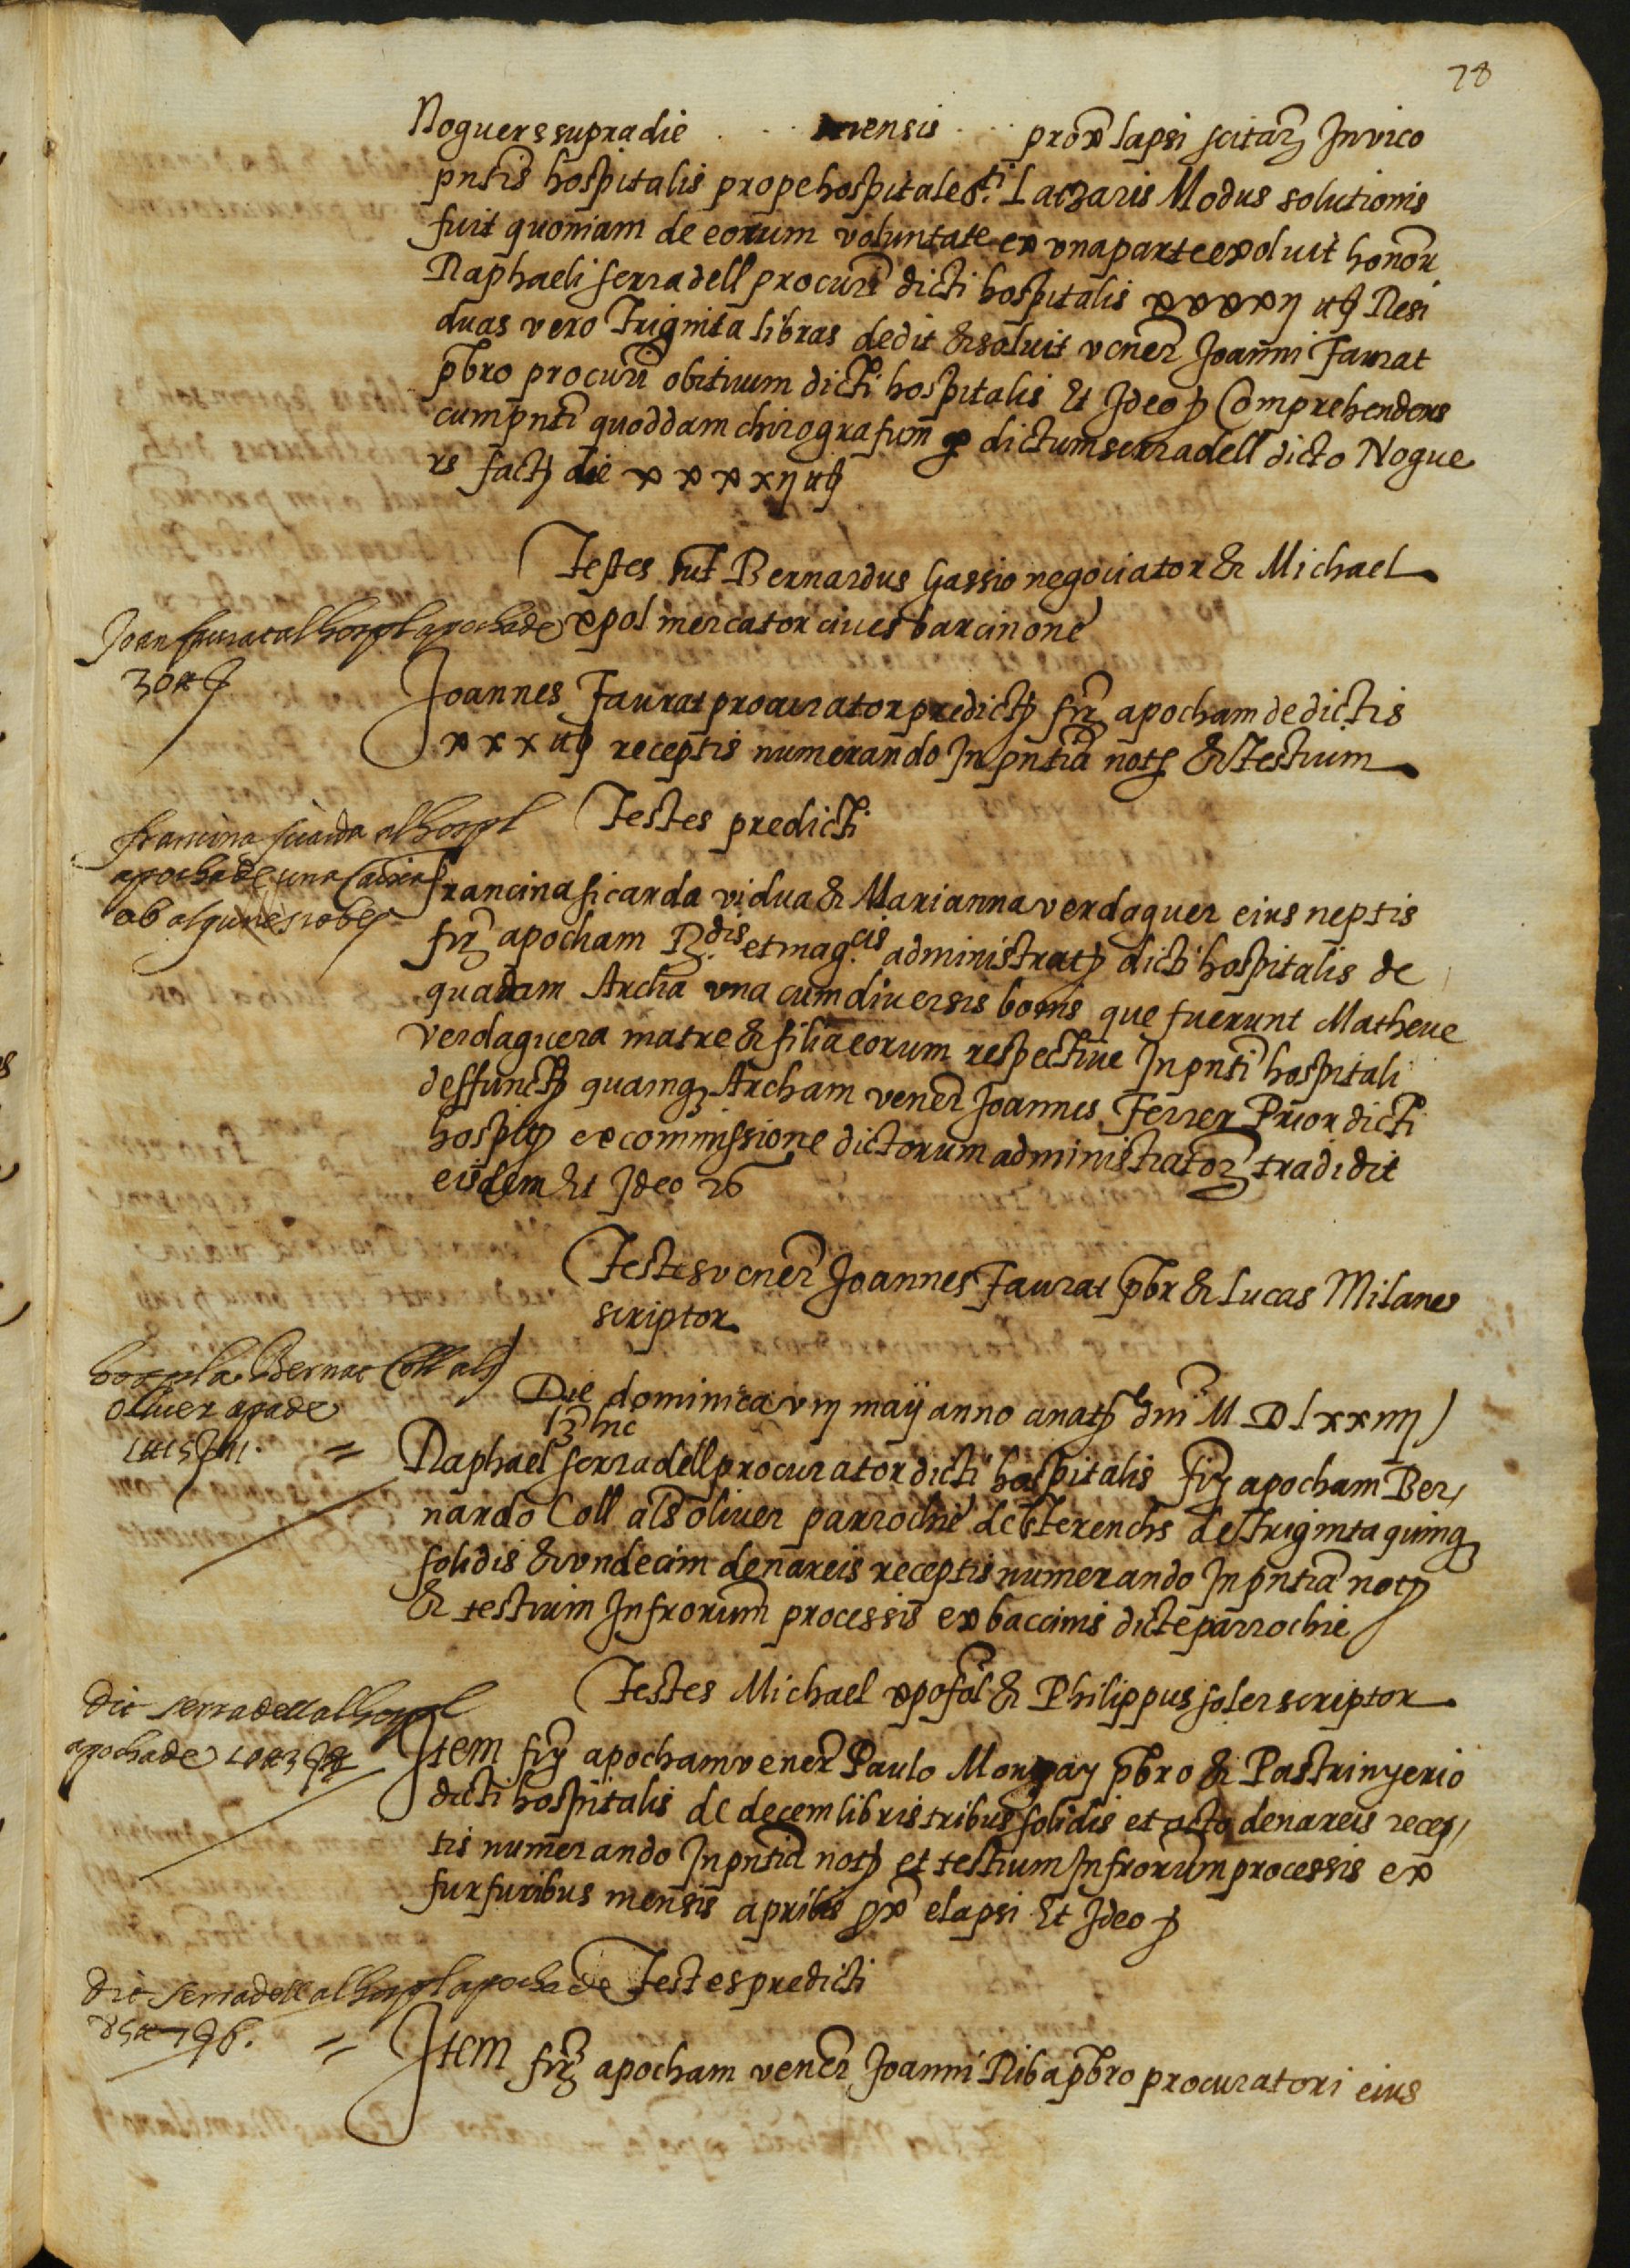 78
Noguers supra die . . . mensis . . prox lapsi scitaꝝ In vico
pntis hospitalis prope hospitale Sti Latzaris Modus solutionis
fuit quoniam de eorum voluntate ex una parte exoluit honor
Raphaeli serradell procuri dicti hospitalis xxxxij Resi
duas vero Triginta libras dedit & soluit vener Joanni Faurat
pbro procuri obituum dicti hospitalis Et Ideo Comprehendens
cum pnti quoddam chirografum p dictum serradell dicto Nogue
rs fact die xxxxij
Testes sut Bernardus Gassio negociator & Michael
xpol mercator ciues barcinone
Joan faurat al hospl apocha de
30
Joannes Faurat procurator predict fir apocham de dictis
xxx receptis numerando In pntia not & Testium
Testes predicti
francina sicarda al hospl
apocha de una caixa
ab algunes robes
francina sicarda vidua & Marianna verdaguer eius neptis
fir apocham Rdis et magcis administrat dicti hospitalis de
quadam Archa una cum diuersis bonis que fuerunt Matheue
Verdaguera matre & filia eorum respectiue In pnti hospitali
deffunct quamq Archam vener Joannes Ferrer Prior dicti
hosplis ex commissione dictorum administratoꝝ tradidit
eisdem Et Ideo
Testes vener Joannes Faurat pbr & Lucas Milane
scriptor
hospl a Bernat Coll als
oliuer apa de
Die dominica viij maij anno a nat dni M D lxxiiij
Raphael serradell procurator dicti hospitalis fir apocham Ber
nardo Coll als oliuer parrochie de Sterenchs de triginta quinq
solidis & undecim denareis receptis numerando In pntia not
& testium Infrorum processis ex baccinis dicte parrochie
Testes Michael xpofol & Philippus soler scriptor
dit serradell al hospl
apocha de
Item fir apocham vener Paulo Morgay pbro & Pastrinyerio
dicti hospitalis de decem libris tribus solidis et octo denareis recep
tis numerando In pntia not et testium Infrorum processis ex
furfuribus mensis aprilis px elapsi Et Ideo
Testes predicti
dit serradell al hospl apocha de
Item fir apocham vener Joanni Riba pbro procuratori eius